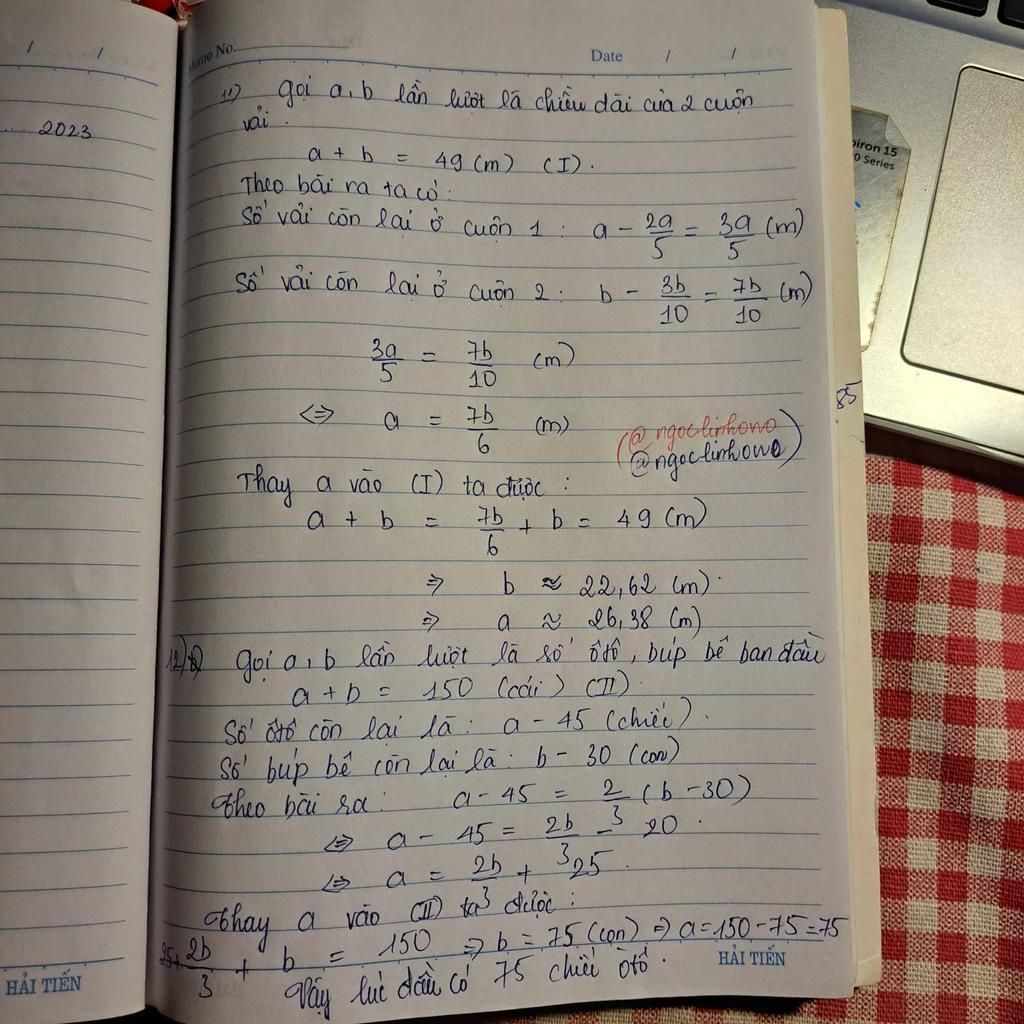 / /
... 2023
Memo No.
Date / /
11) Gọi a, b lần lượt là chiều dài của 2 cuộn
vải.
a + b = 49 (m) (I).
Theo bài ra ta có:
Số vải còn lại ở cuộn 1 : a - 2a/5 = 3a/5 (m)
Số vải còn lại ở cuộn 2 : b - 3b/10 = 7b/10 (m)
3a/5 = 7b/10 (m)
<=> a = 7b/6 (m)
(@ngoclinhowo
@ngoclinhowo)
Thay a vào (I) ta được :
a + b = 7b/6 + b = 49 (m)
=> b ≈ 22,62 (m).
=> a ≈ 26,38 (m)
12) Gọi a, b lần lượt là số ôtô, búp bê ban đầu
a + b = 150 (cái) (II)
Số ôtô còn lại là : a - 45 (chiếc).
Số búp bê còn lại là : b - 30 (con)
Theo bài ra : a - 45 = 2/3 (b - 30)
<=> a - 45 = 2b/3 - 20.
<=> a = 2b/3 + 25.
Thay a vào (II) ta được :
25 + 2b/3 + b = 150 => b = 75 (con) => a = 150 - 75 = 75
Vậy lúc đầu có 75 chiếc ôtô.
HẢI TIẾN
HẢI TIẾN
85
piron 15
0 Series